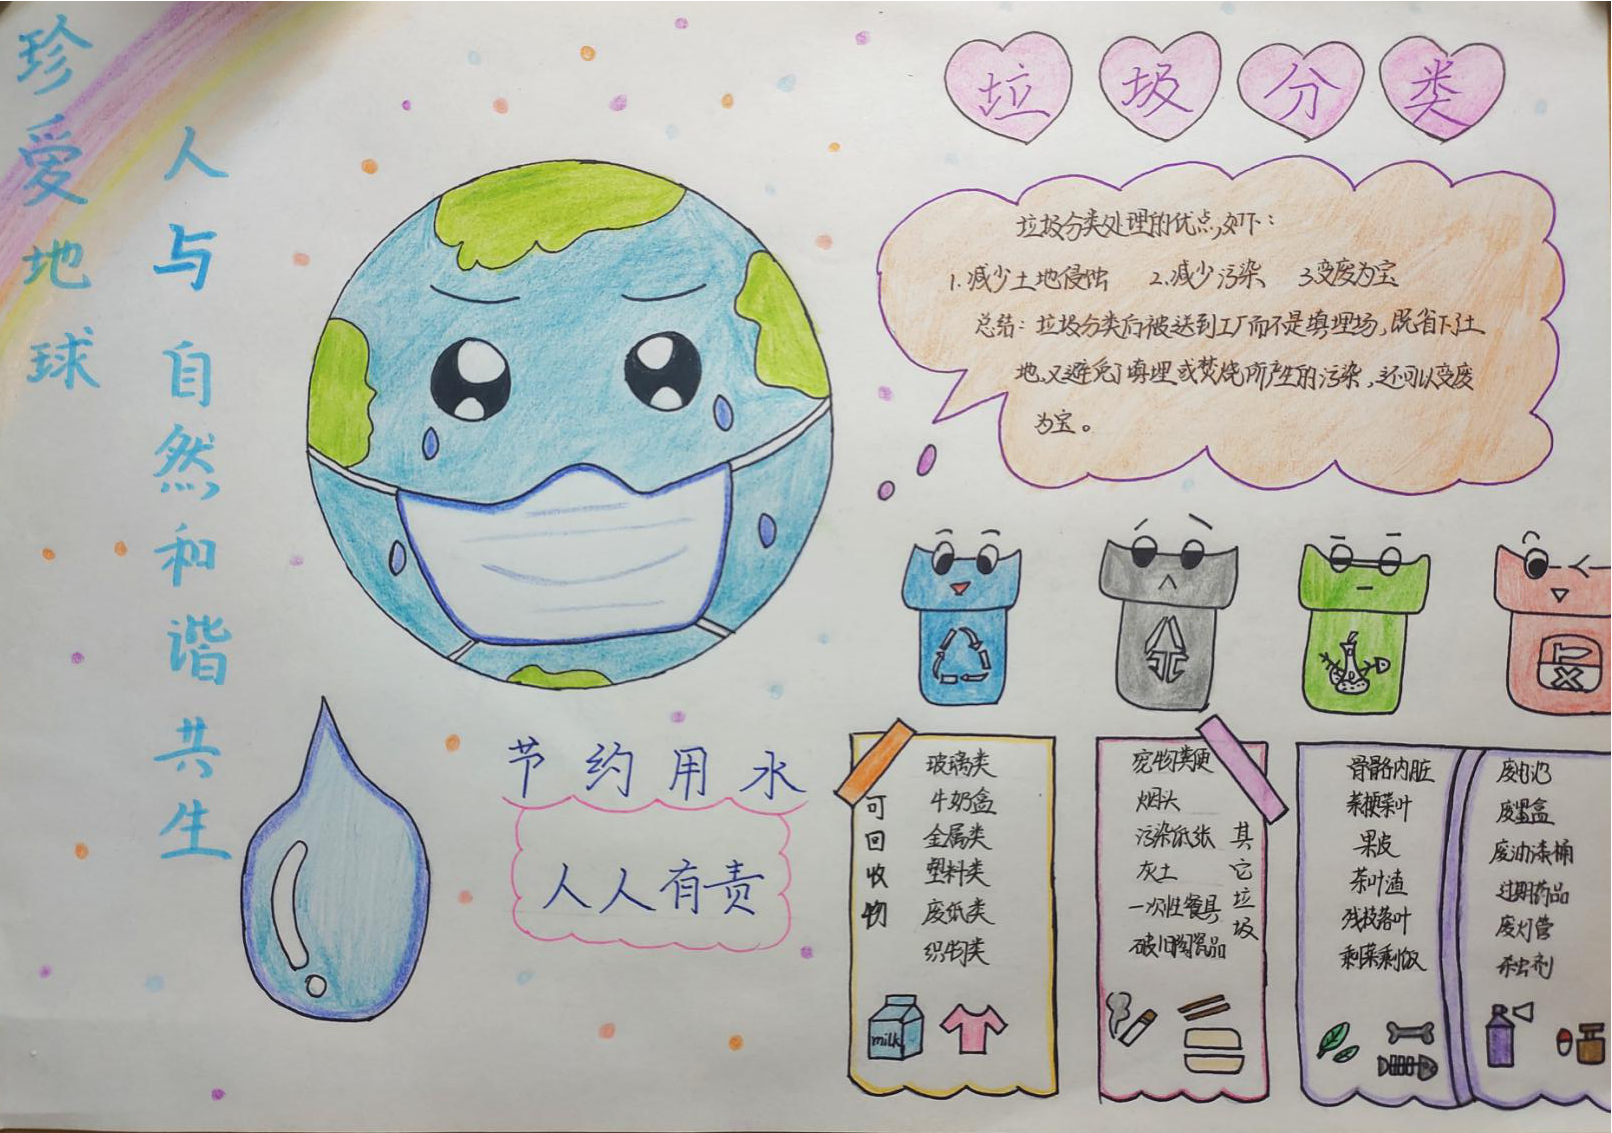 珍爱地球
人与自然和谐共生
垃圾分类
垃圾分类处理的优点,如下:
1.减少土地侵蚀 2.减少污染 3.变废为宝
总结:垃圾分类后被送到工厂而不是填埋场,既省下土
地,又避免了填埋或焚烧所产生的污染,还可以变废
为宝。
节约用水
人人有责
可回收物
玻璃类
牛奶盒
金属类
塑料类
废纸类
织物类
milk
宠物粪便
烟头
污染纸张
灰土
一次性餐具
破旧陶瓷品
其它垃圾
骨骼内脏
菜梗菜叶
果皮
茶叶渣
残枝落叶
剩菜剩饭
废电池
废墨盒
废油漆桶
过期药品
废灯管
杀虫剂